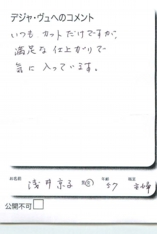 デジャ・ヴュへのコメント
いつも カットだけですが、
満足な仕上がりで
気に入っています。
お名前 浅井京子 年齢 57 職業 主婦
公開不可